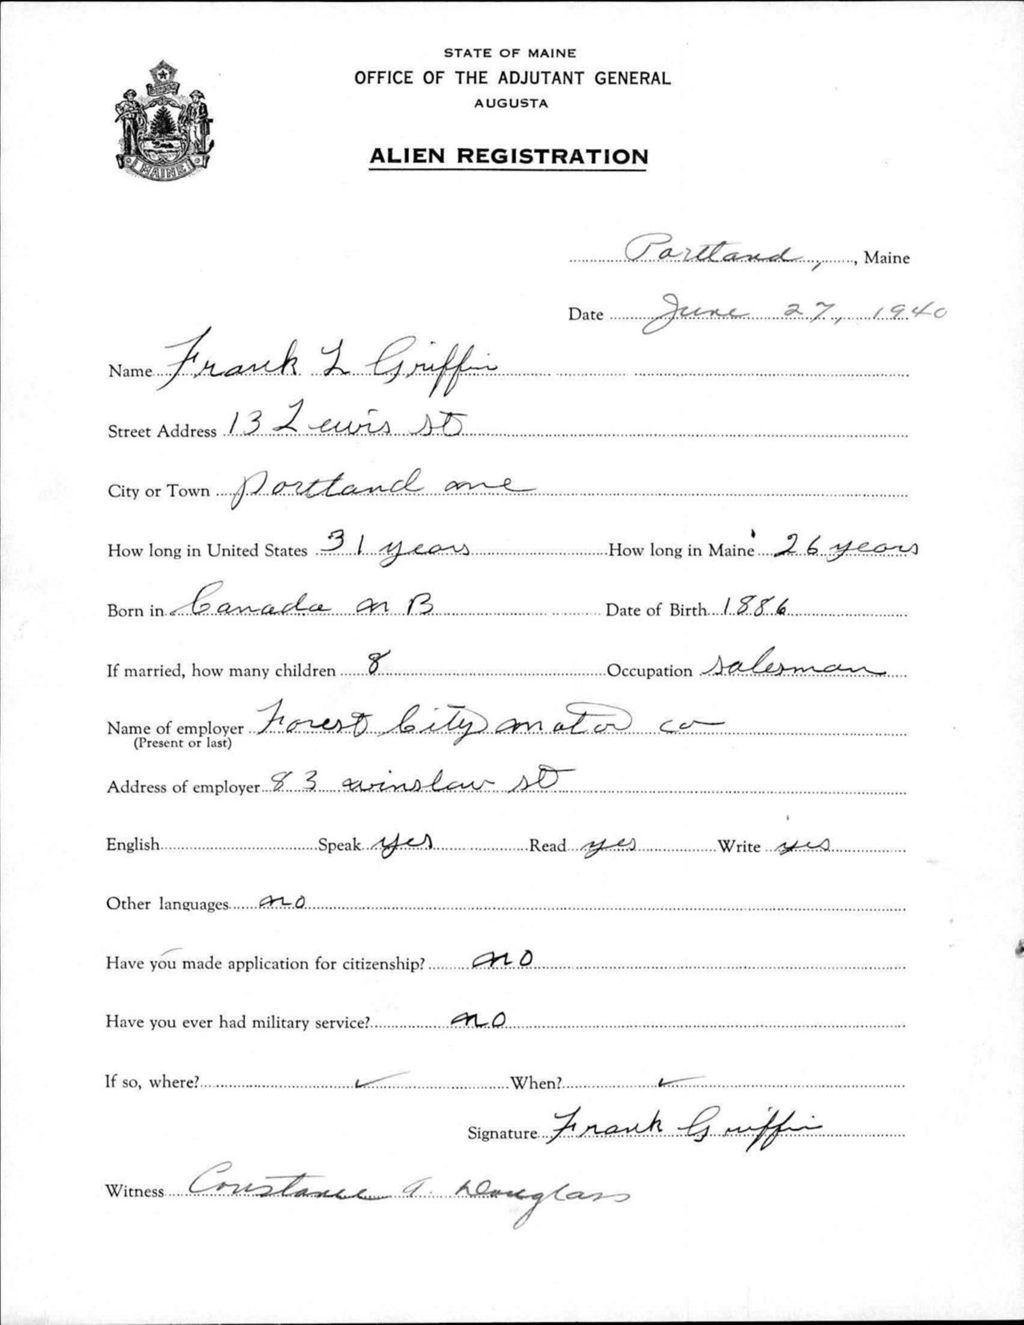 STATE OF MAINE
OFFICE OF THE ADJUTANT GENERAL
AUGUSTA
ALIEN REGISTRATION
MAINE
Portland, , Maine
Date June 27, 1940
Name Frank L Griffin
Street Address 13 Lewis St
City or Town Portland me
How long in United States 31 years How long in Maine 26 years
Born in Canada N B Date of Birth 1886
If married, how many children 8 Occupation salesman
Name of employer Forest City Motor Co
(Present or last)
Address of employer 83 winslow St
English Speak yes Read yes Write yes
Other languages no
Have you made application for citizenship? no
Have you ever had military service? no
If so, where? ✓ When? ✓
Signature Frank Griffin
Witness Constance A. Douglass